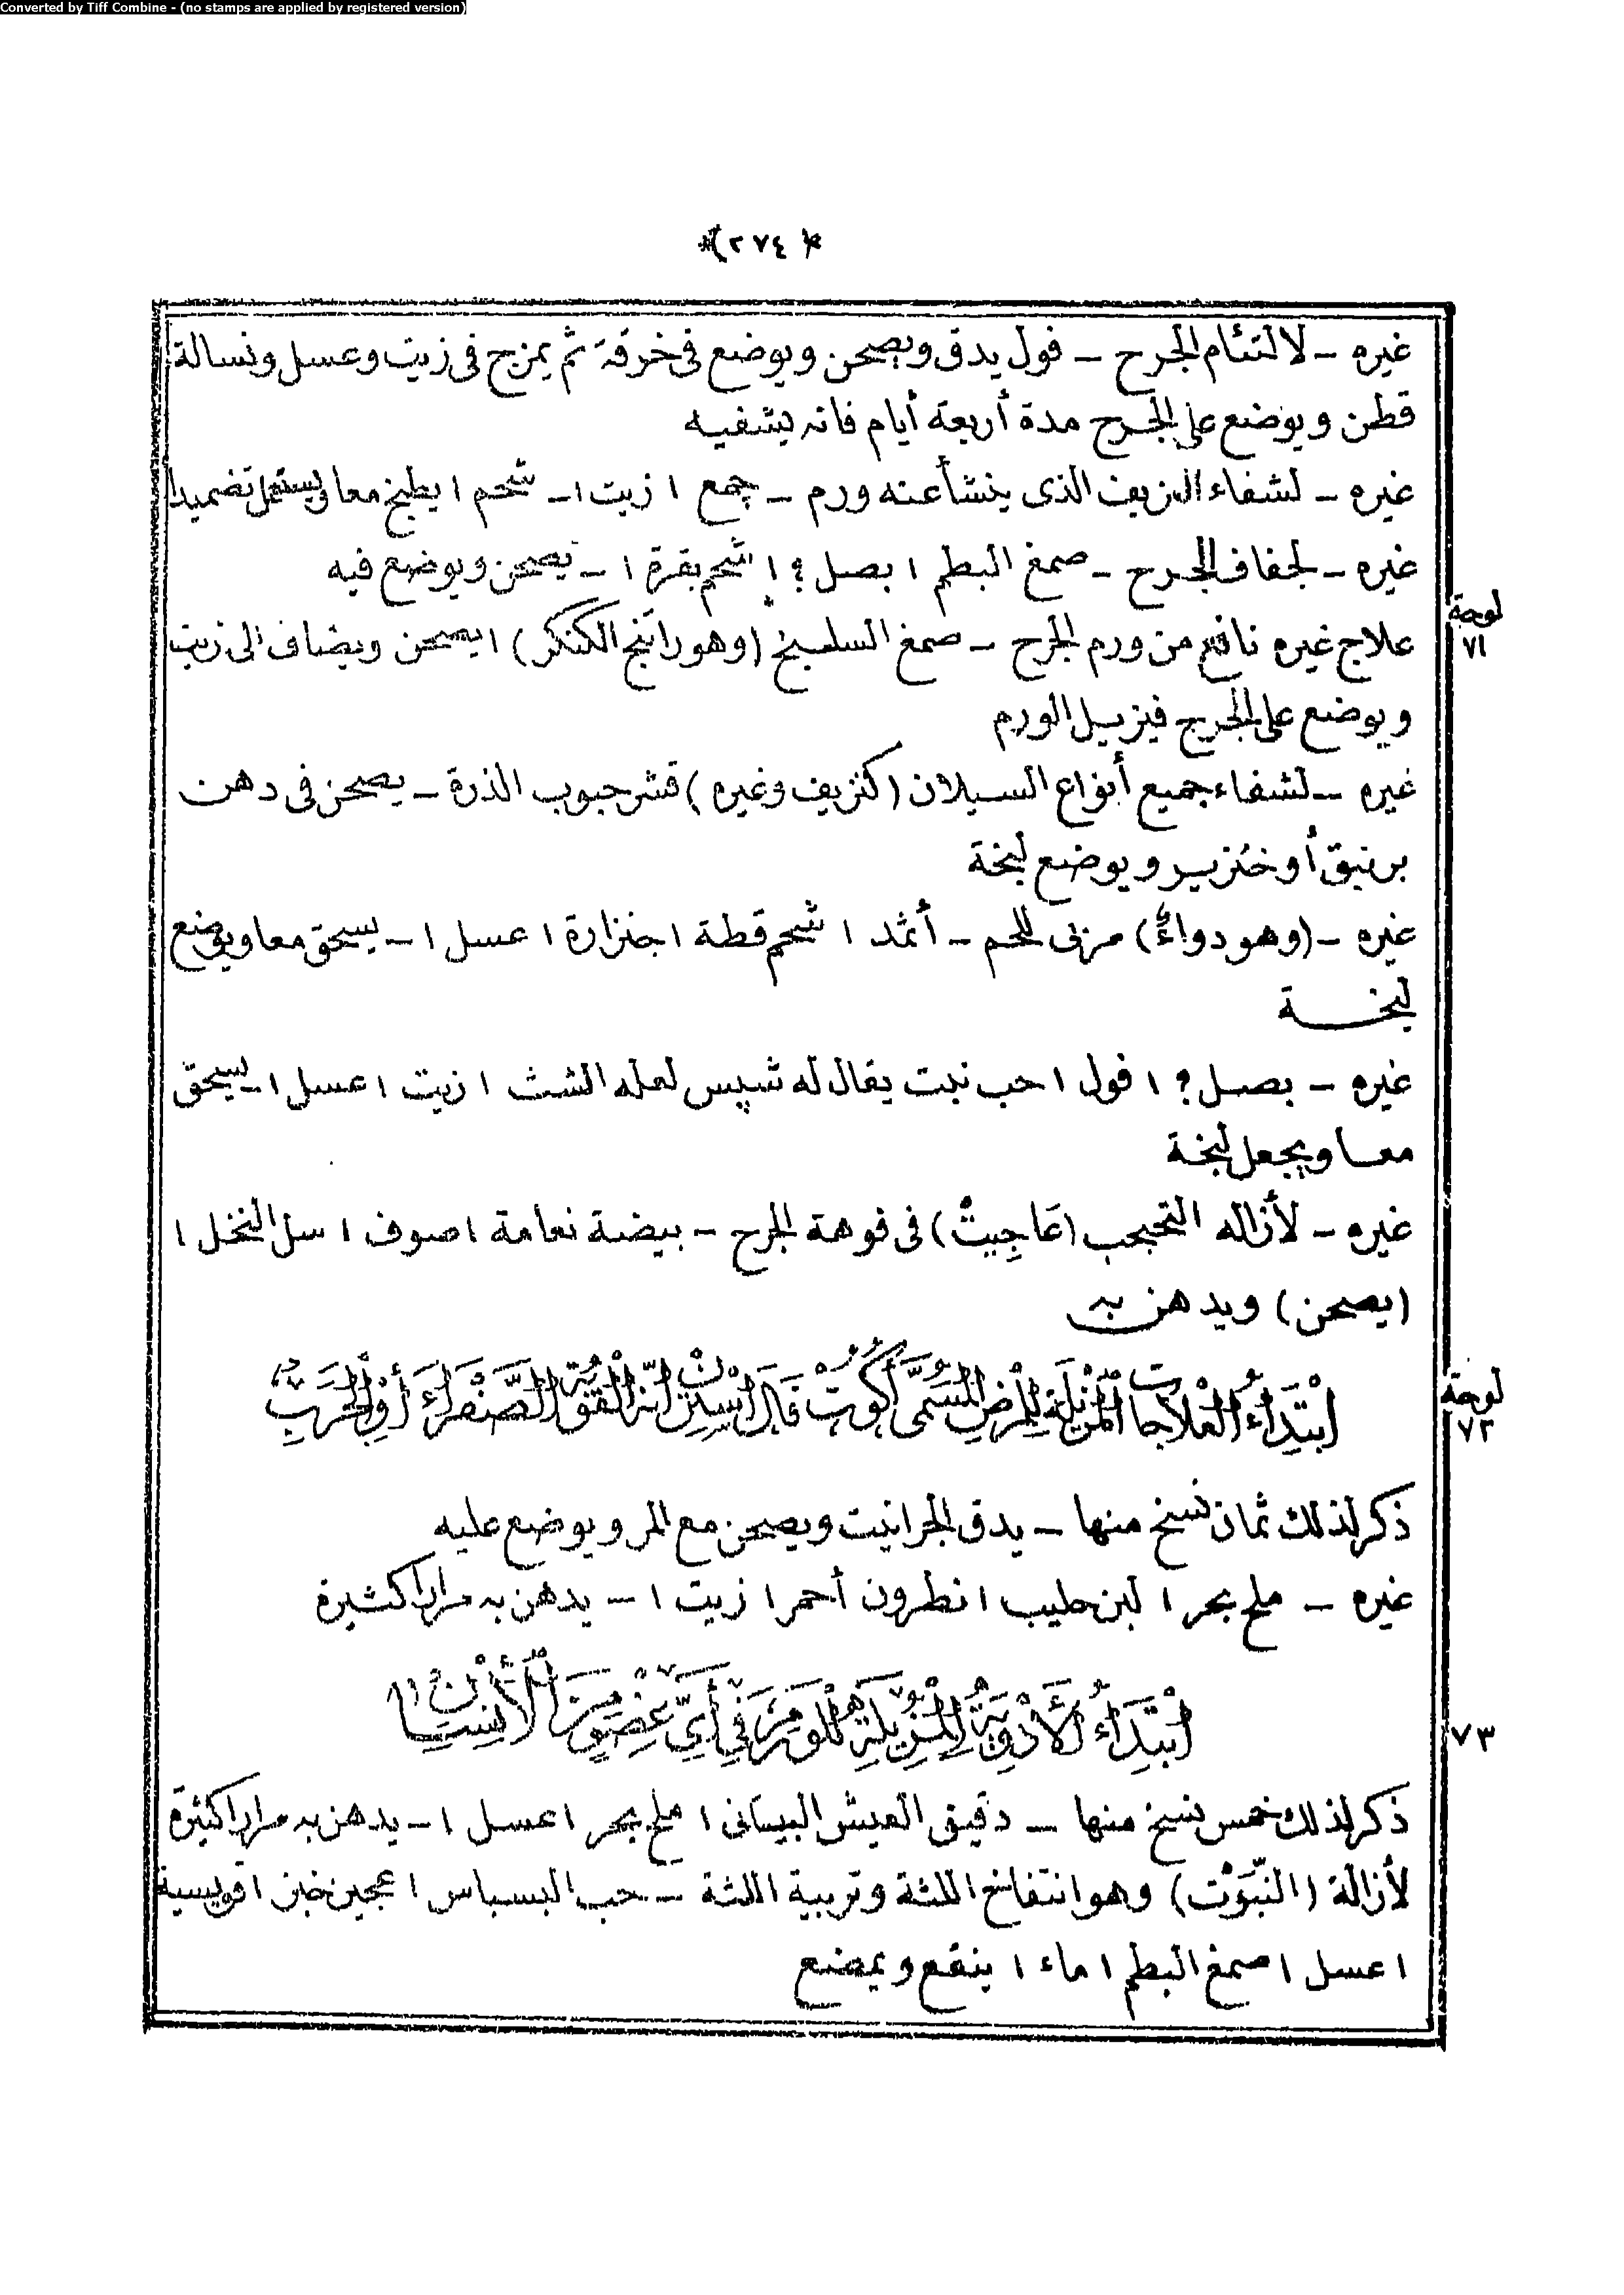 Converted by Tiff Combine - (no stamps are applied by registered version)
*(٢٧٤)*
غيره - لالتئام الجرح - فول يدق ويصحن ويوضع فى خرقة ثم يمزج فى زيت وعسل ونسالة
قطن ويوضع على الجرح مدة أربعة أيام فانه يشفيه
غيره - لشفاء النزيف الذى ينشأ عنه ورم - جمع ١ زيت ١ - شحم ١ يطبخ معا ويستعمل تضميدا
غيره - لجفاف الجرح - صمغ البطم ١ بصل ؟ ١ شحم بقرة ١ - يصحن ويوضع فيه
لوحة ٧١
علاج غيره نافع من ورم الجرح - صمغ السلسبخ (وهو راتنج الكنكر) ١ يصحن ويضاف الى زيت
ويوضع على الجرح فيزيل الورم
غيره - لشفاء جميع أنواع السيلان (كنزيف وغيره) قشر حبوب الذرة - يصحن فى دهن
برنيق أو خنزير ويوضع لبخة
غيره - (وهو دواء) مربى للحم - أثمد ١ شحم قطة ١ جنزارة ١ عسل ١ - يسحق معا ويوضع
لبخة
غيره - بصل ؟ ١ فول ١ حب نبت يقال له شپس لعله الشث ١ زيت ١ عسل ١ - يسحق
معا ويجعل لبخة
غيره - لأزاله التحبحب (عَاجِيتْ) فى فوهة الجرح - بيضة نعامة ١ صوف ١ سل النخل ١
(يصحن) ويدهن به
لوحة ٧٢
ابْتِدَاءُ الْعلاجات الْمُزيلَة لِلْمرضِ المُسَمَّى أكُوتْ قَالَ اشتِرْن انه القُوبَة الصَّفْرَاءُ أوِ الجَرَب
ذكر لذلك ثمان نسخ منها - يدق الجرانيت ويصحن مع المر ويوضع عليه
غيره - ملح بحر ١ لبن حليب ١ نطرون أحمر ١ زيت ١ - يدهن به مرارا كثيرة
٧٣
ابْتِدَاءُ الأَدْوِيَةُ الْمُزِيلَةِ لِلْوَرَمِ فِي أَيِّ عُضْوٍ مِنَ الأنْسِان
ذكر لذلك خمس نسخ منها - دقيق العيش البيتانى ١ ملح بحر ١ عسل ١ - يدهن به مرارا كثيرة
لأزالة (النِّبَوْت) وهو انتفاخ اللثة وتربية اللثة - حب البسباس ١ عجين خبز ١ قويسية
١ عسل ١ صمغ البطم ١ ماء ١ ينقع ويمضغ